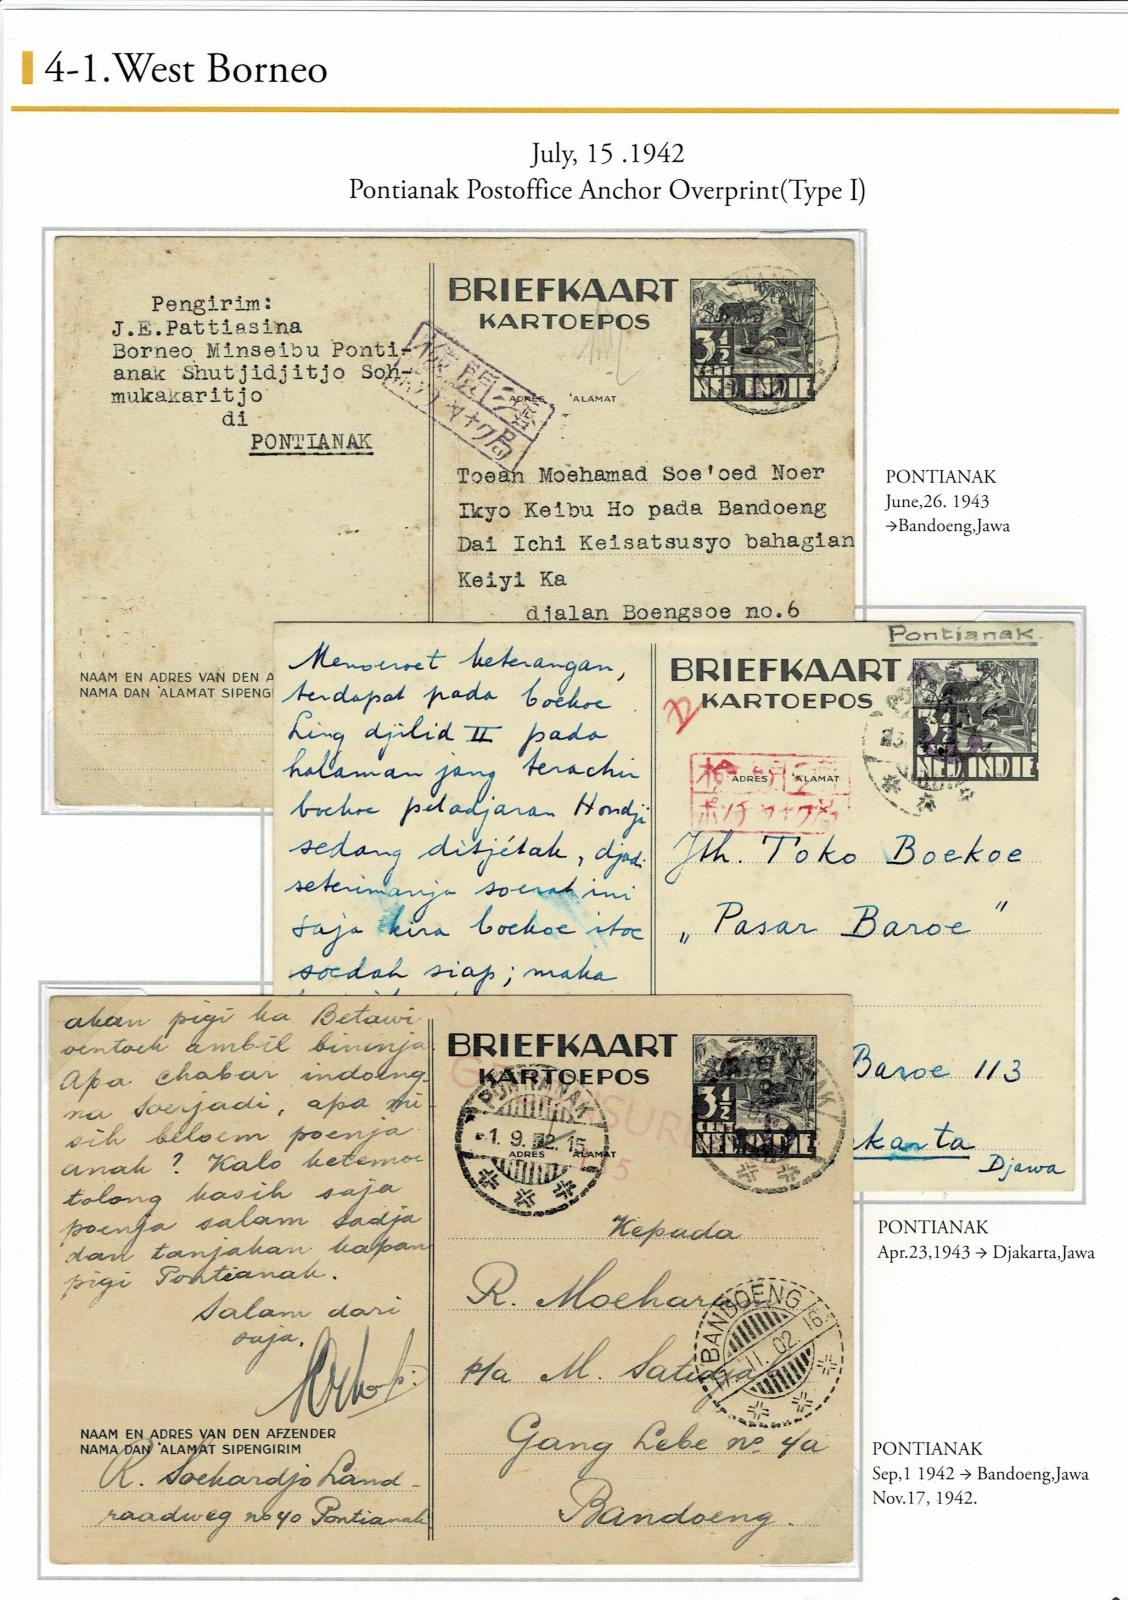 4-1.West Borneo
July, 15 .1942
Pontianak Postoffice Anchor Overprint(Type I)
Pengirim:
J.E.Pattiasina
Borneo Minseibu Ponti-
anak Shutjidjitjo Soh-
mukakaritjo
di
PONTIANAK
BRIEFKAART
KARTOEPOS
3½
CENT
NED. INDIE
ADRES 'ALAMAT
検閲済
Toean Moehamad Soe'oed Noer
Ikyo Keibu Ho pada Bandoeng
Dai Ichi Keisatsusyo bahagian
Keiyi Ka
djalan Boengsoe no.6
NAAM EN ADRES VAN DEN A
NAMA DAN 'ALAMAT SIPENGI
PONTIANAK
June,26. 1943
→Bandoeng,Jawa
Menoeroet keterangan,
terdapat pada boekoe
Ling djilid II pada
halaman jang terachir
boekoe peladjaran Hondji
sedang ditjétak, djadi
seterimanja soerat ini
saja kira boekoe itoe
soedah siap; maka
Pontianak.
BRIEFKAART
KARTOEPOS
3½
NED. INDIE
ADRES 'ALAMAT
検閲済
ポンチヤナク局
Jth. Toko Boekoe
„Pasar Baroe"
Baroe 113
karta
Djawa
PONTIANAK
Apr.23,1943 → Djakarta,Jawa
akan pigi ka Betawi
oentoek ambil bininja
Apa chabar indoeng-
na Soerjadi, apa mi-
sih beloem poenja
anak? Kalo ketemoe
tolong kasih saja
poenja salam sadja
dan tanjakan kapan
pigi Pontianak.
Salam dari
saja.
NAAM EN ADRES VAN DEN AFZENDER
NAMA DAN 'ALAMAT SIPENGIRIM
R. Soekardjo Land-
raadweg no 40 Pontianak
BRIEFKAART
KARTOEPOS
PONTIANAK
-1. 9. 15
ADRES 'ALAMAT
3½
CENT
NED. INDIE
Kepada
R. Moehar
p/a M. Satidja
Gang Lebe no 4a
Bandoeng.
BANDOENG
11. 02. 16
PONTIANAK
Sep,1 1942 → Bandoeng,Jawa
Nov.17, 1942.